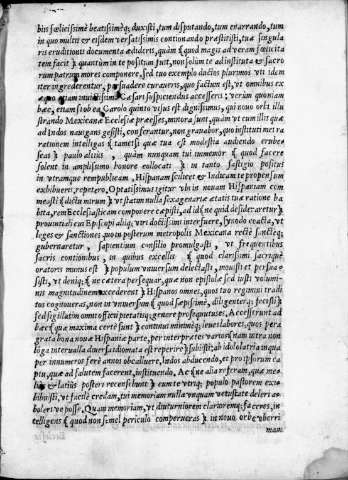 biis fœlicissimè beatissimèq; duxisti, tum disputando, tum enarrando, tum
in quo multis ex eisdem versatissimis contionando præstitisti, tuæ singula
ris eruditionis documenta ædideris, quàm (quod magis ad veram fœlicita
tem facit) quantùm in te positum fuit, non solùm te ad instituta & sacro
rum patrum mores componere, sed tuo exemplo dactos plurimos vti idem
iter ingrederentur, persuadere curaueris, quo factum est, vt omnibus ex
Carsari sospiciendus accesseris; verùm quoniam
hæc, etiam ab ea Carolo quinto visus est dignissimus, qui nouo orbi illu
strando Mexicanæ Ecclesiæ præesses, minora sunt, quàm vt cum illis quæ
ad Indos nauigans gessisti, conferantur, non grauabor, quo instituti mei ra
rationem intelligas (tametsi quæ tua est modestia audiendo erube
seas) paulò altiùs, quàm nunquam tui immemor (quod facere
solent in amplissimo honore collocati) in tanto fastigio positus
in vtramque rempublicam, Hispanam scilicet & Indicam te propensum
exhibueris, repetere. Optatissimus igitur vbi in nouam Hispaniam com
measti (dictu mirum) vt statim nulla sexagenariæ ætatis tuæ ratione ha
bita, rem Ecclesiasticam componere cæpisti, ad id (ne quid desideraretur)
prouintiali cum Episcopali aliisq; viri doctissimi interfuere, synodo coacta, vt
leges & sanctiones, quo in posterum metropolis Mexicana rectè sanctèq;
gubernaretur, sapientum consilio promulgasti, vt frequentibus
sacris contionibus, in quibus excellis (quod clarissimi sacriquè
oratoris munus est) populum vniuersum delectasti, mouisti et persua
sisti, vt deniq; (ne cætera persequar, quæ non epistolæ sed iusti volumi
nis magnitudinem excederent) Hispanos omnes, quos tuo regimini tradi
tos cognoueras, non in vniuersum (quod sæpissimè, diligenterq; fecisti)
sed sigillatim omni officii pietatisq; genere prosequutus es. Accesserunt ad
hæc (quæ maxima certè sunt) continui minimèq; leues labores, quos pera
grata bona nouæ Hispaniæ parte, per interpretes variorum (nam vtra non
longa interualla diuersa idiomata est reperire) subiisti, ab idololatria in qua
per innumeros ferè annos obcalluere, Indos abducendo, et pro ipsorum ca
ptu, quæ ad salutem facerent, instituendo. Ac (ne alia referam, quæ me
liùs & latiùs posteri recensebunt) eum te vtriq; populo pastorem exhi
bibuisti, vt facilè credam, tui memoriam nulla vnquam vetustate deleri a
boleri ve posse. Quam memoriam, vt diuturniorem clarioremq; faceres, in
telligens (quod non semel periculo comperueras) in nouo orbe vberri
mam